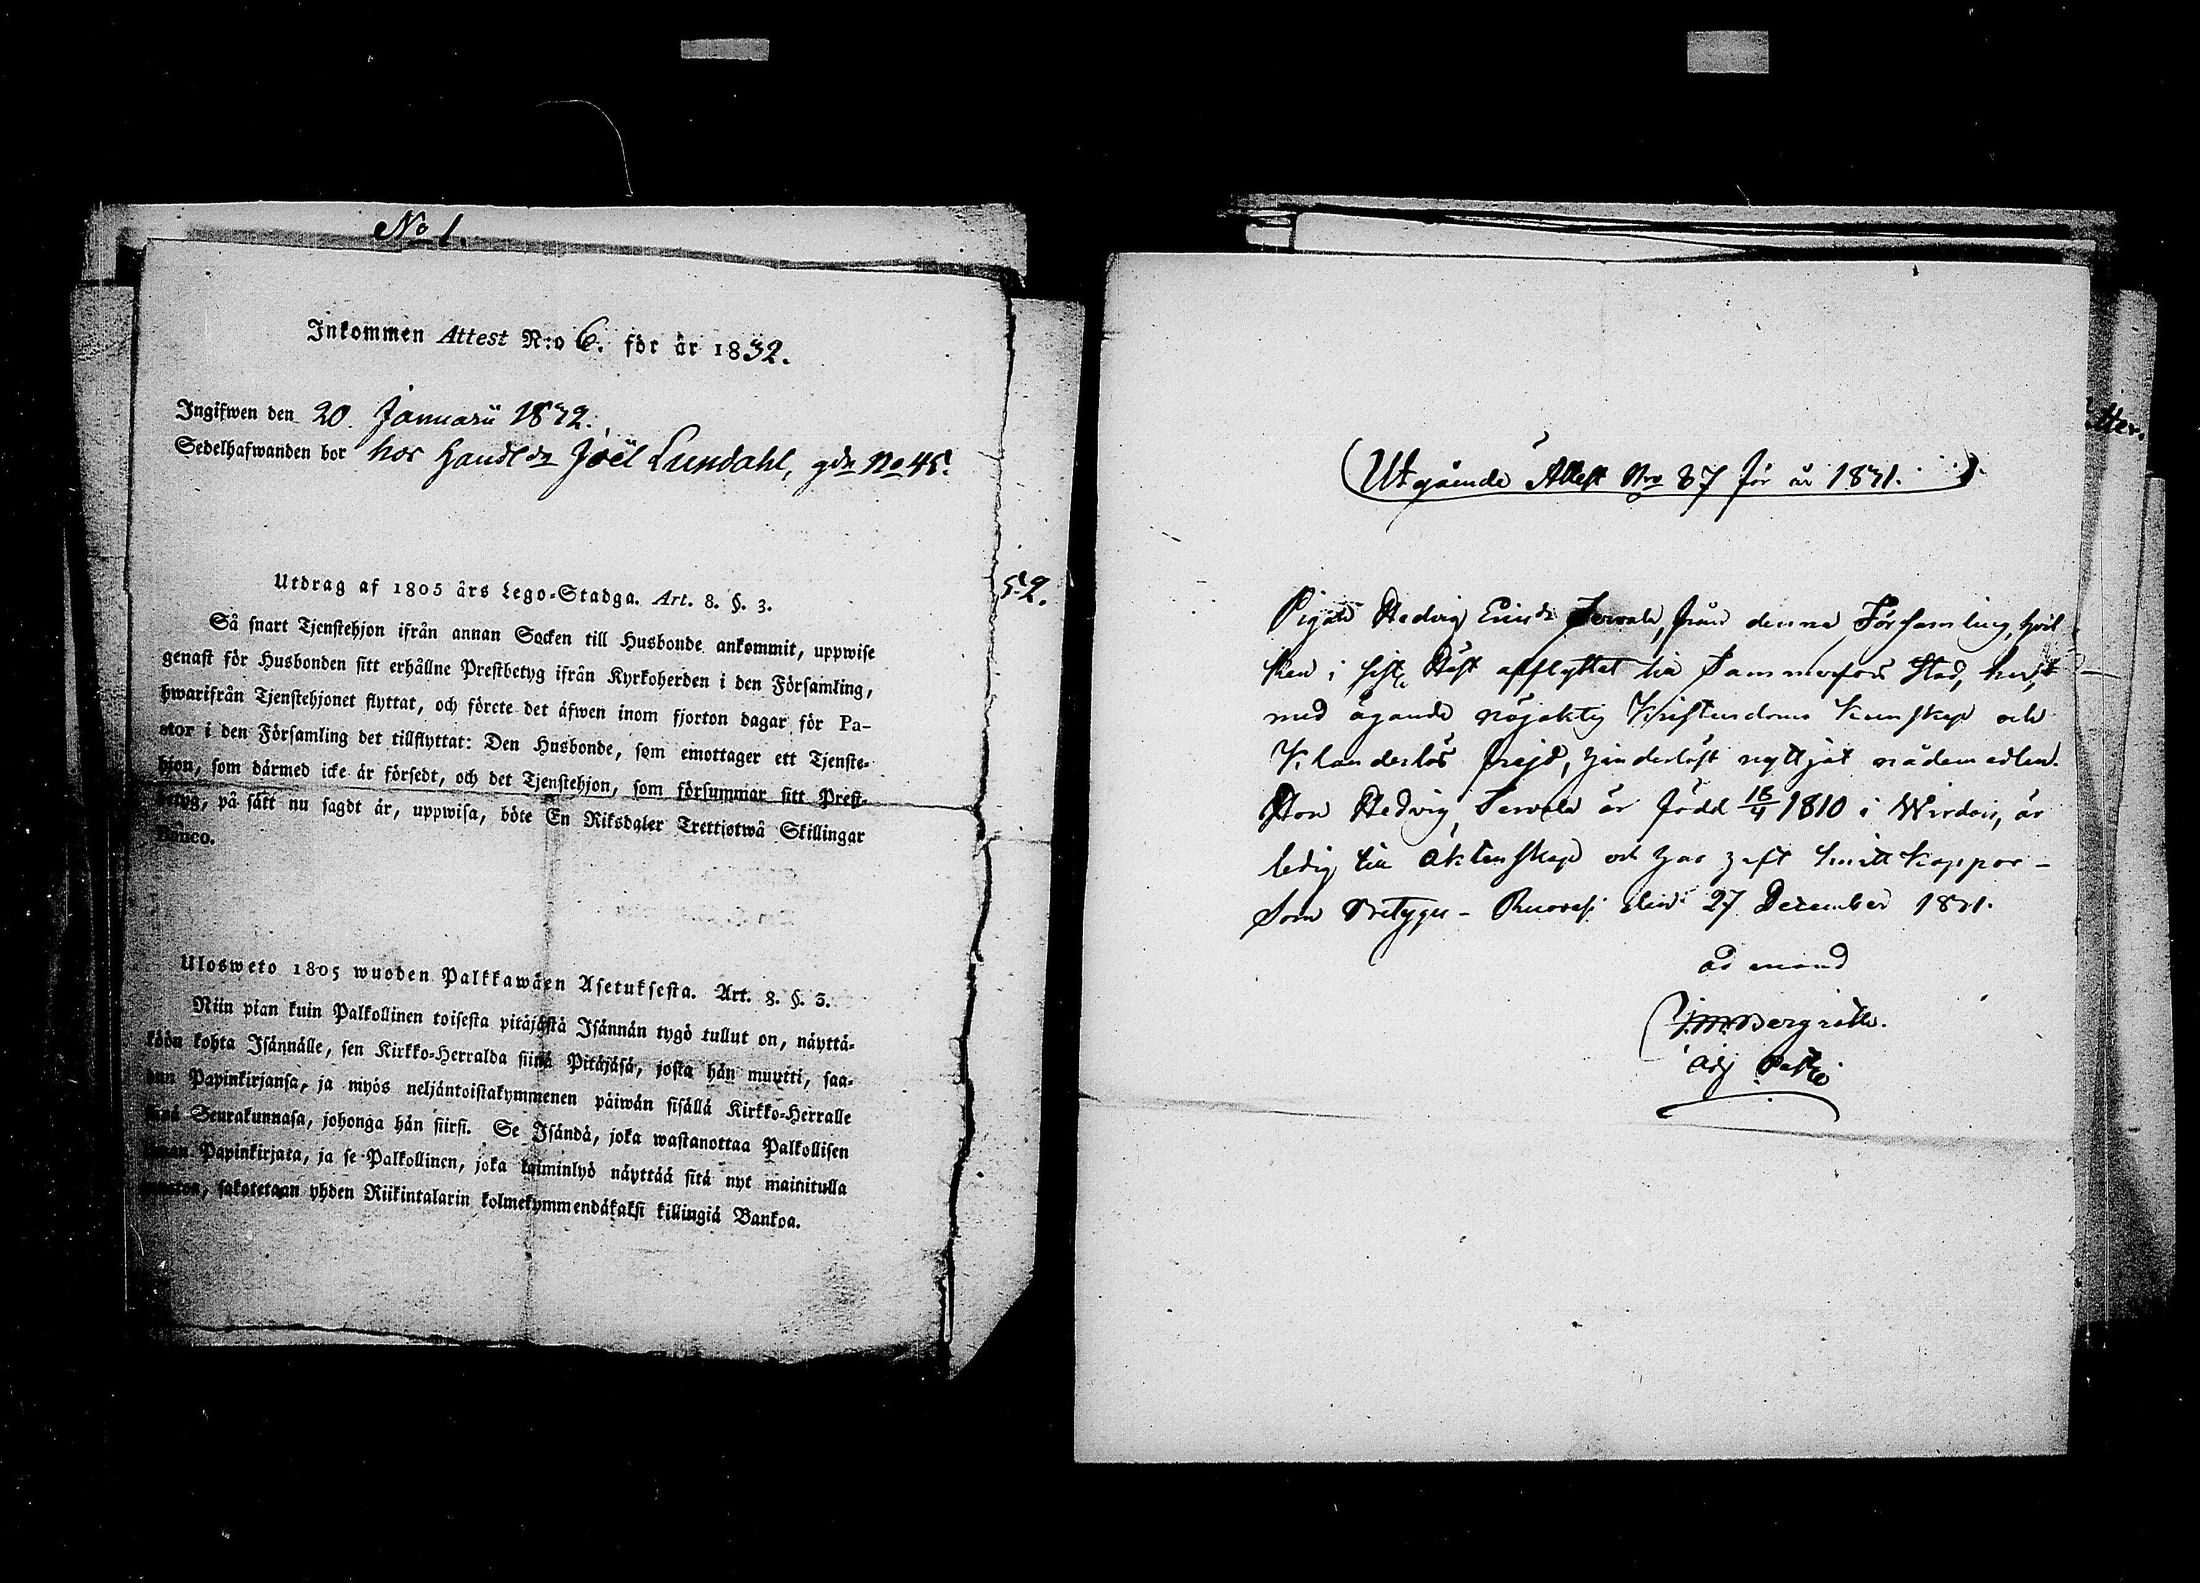 No 1.
Inkommen Attest N:o 6. för år 1832.
Ingifwen den 20 Januarii 1832.
Sedelhafwanden bor hos Handl:dn Joël Lundahl, gdn No 45.
52.
Utdrag af 1805 års Lego-Stadga. Art. 8. §. 3.
Så snart Tjenstehjon ifrån annan Socken till Husbonde ankommit, uppwise
genast för Husbonden sitt erhållne Prestbetyg ifrån Kyrkoherden i den Församling,
hwarifrån Tjenstehjonet flyttat, och förete det äfwen inom fjorton dagar för Pa-
stor i den Församling det tillflyttat: Den Husbonde, som emottager ett Tjenste-
hjon, som därmed icke är försedt, och det Tjenstehjon, som försummar sitt Prest-
betyg, på sätt nu sagdt är, uppwisa, böte En Riksdaler Trettiotwå Skillingar
Banco.
Ulosweto 1805 wuoden Palkkawäen Asetuksesta. Art. 8. §. 3.
Niin pian kuin Palkollinen toisesta pitäjästä Isännän tygö tullut on, näyttä-
köön kohta Isännälle, sen Kirkko-Herralda siinä Pitäjäsä, josta hän muutti, saa-
dun Papinkirjansa, ja myös neljäntoistakymmenen päiwän sisällä Kirkko-Herralle
siinä Seurakunnasa, johonga hän siirsi. Se Isändä, joka wastanottaa Palkollisen
ilman Papinkirjata, ja se Palkollinen, joka laiminlyö näyttää sitä nyt mainitulla
sakotetaan yhden Riikintalarin kolmekymmendäkaksi killingiä Bankoa.
tter.
Utgående Attest Nro 87 för år 1831.
Pigan Hedvig Ericsdr Servala, från denna Församling, hvil-
ken i sistl. Höst afflyttat till Tammerfors Stad, har,
med ägande nöjaktig Kristendoms Kunskap och
Klanderlös frejd, hinderlöst nyttjat nådemedlen.
Hon Hedvig Servala är född 18/4 1810 i Wirdois, är
ledig till äktenskap och har haft Smittkoppor -
Som betygas - Ruovesi den 27 December 1831.
ad mand
Bergroth.
Adj Past: